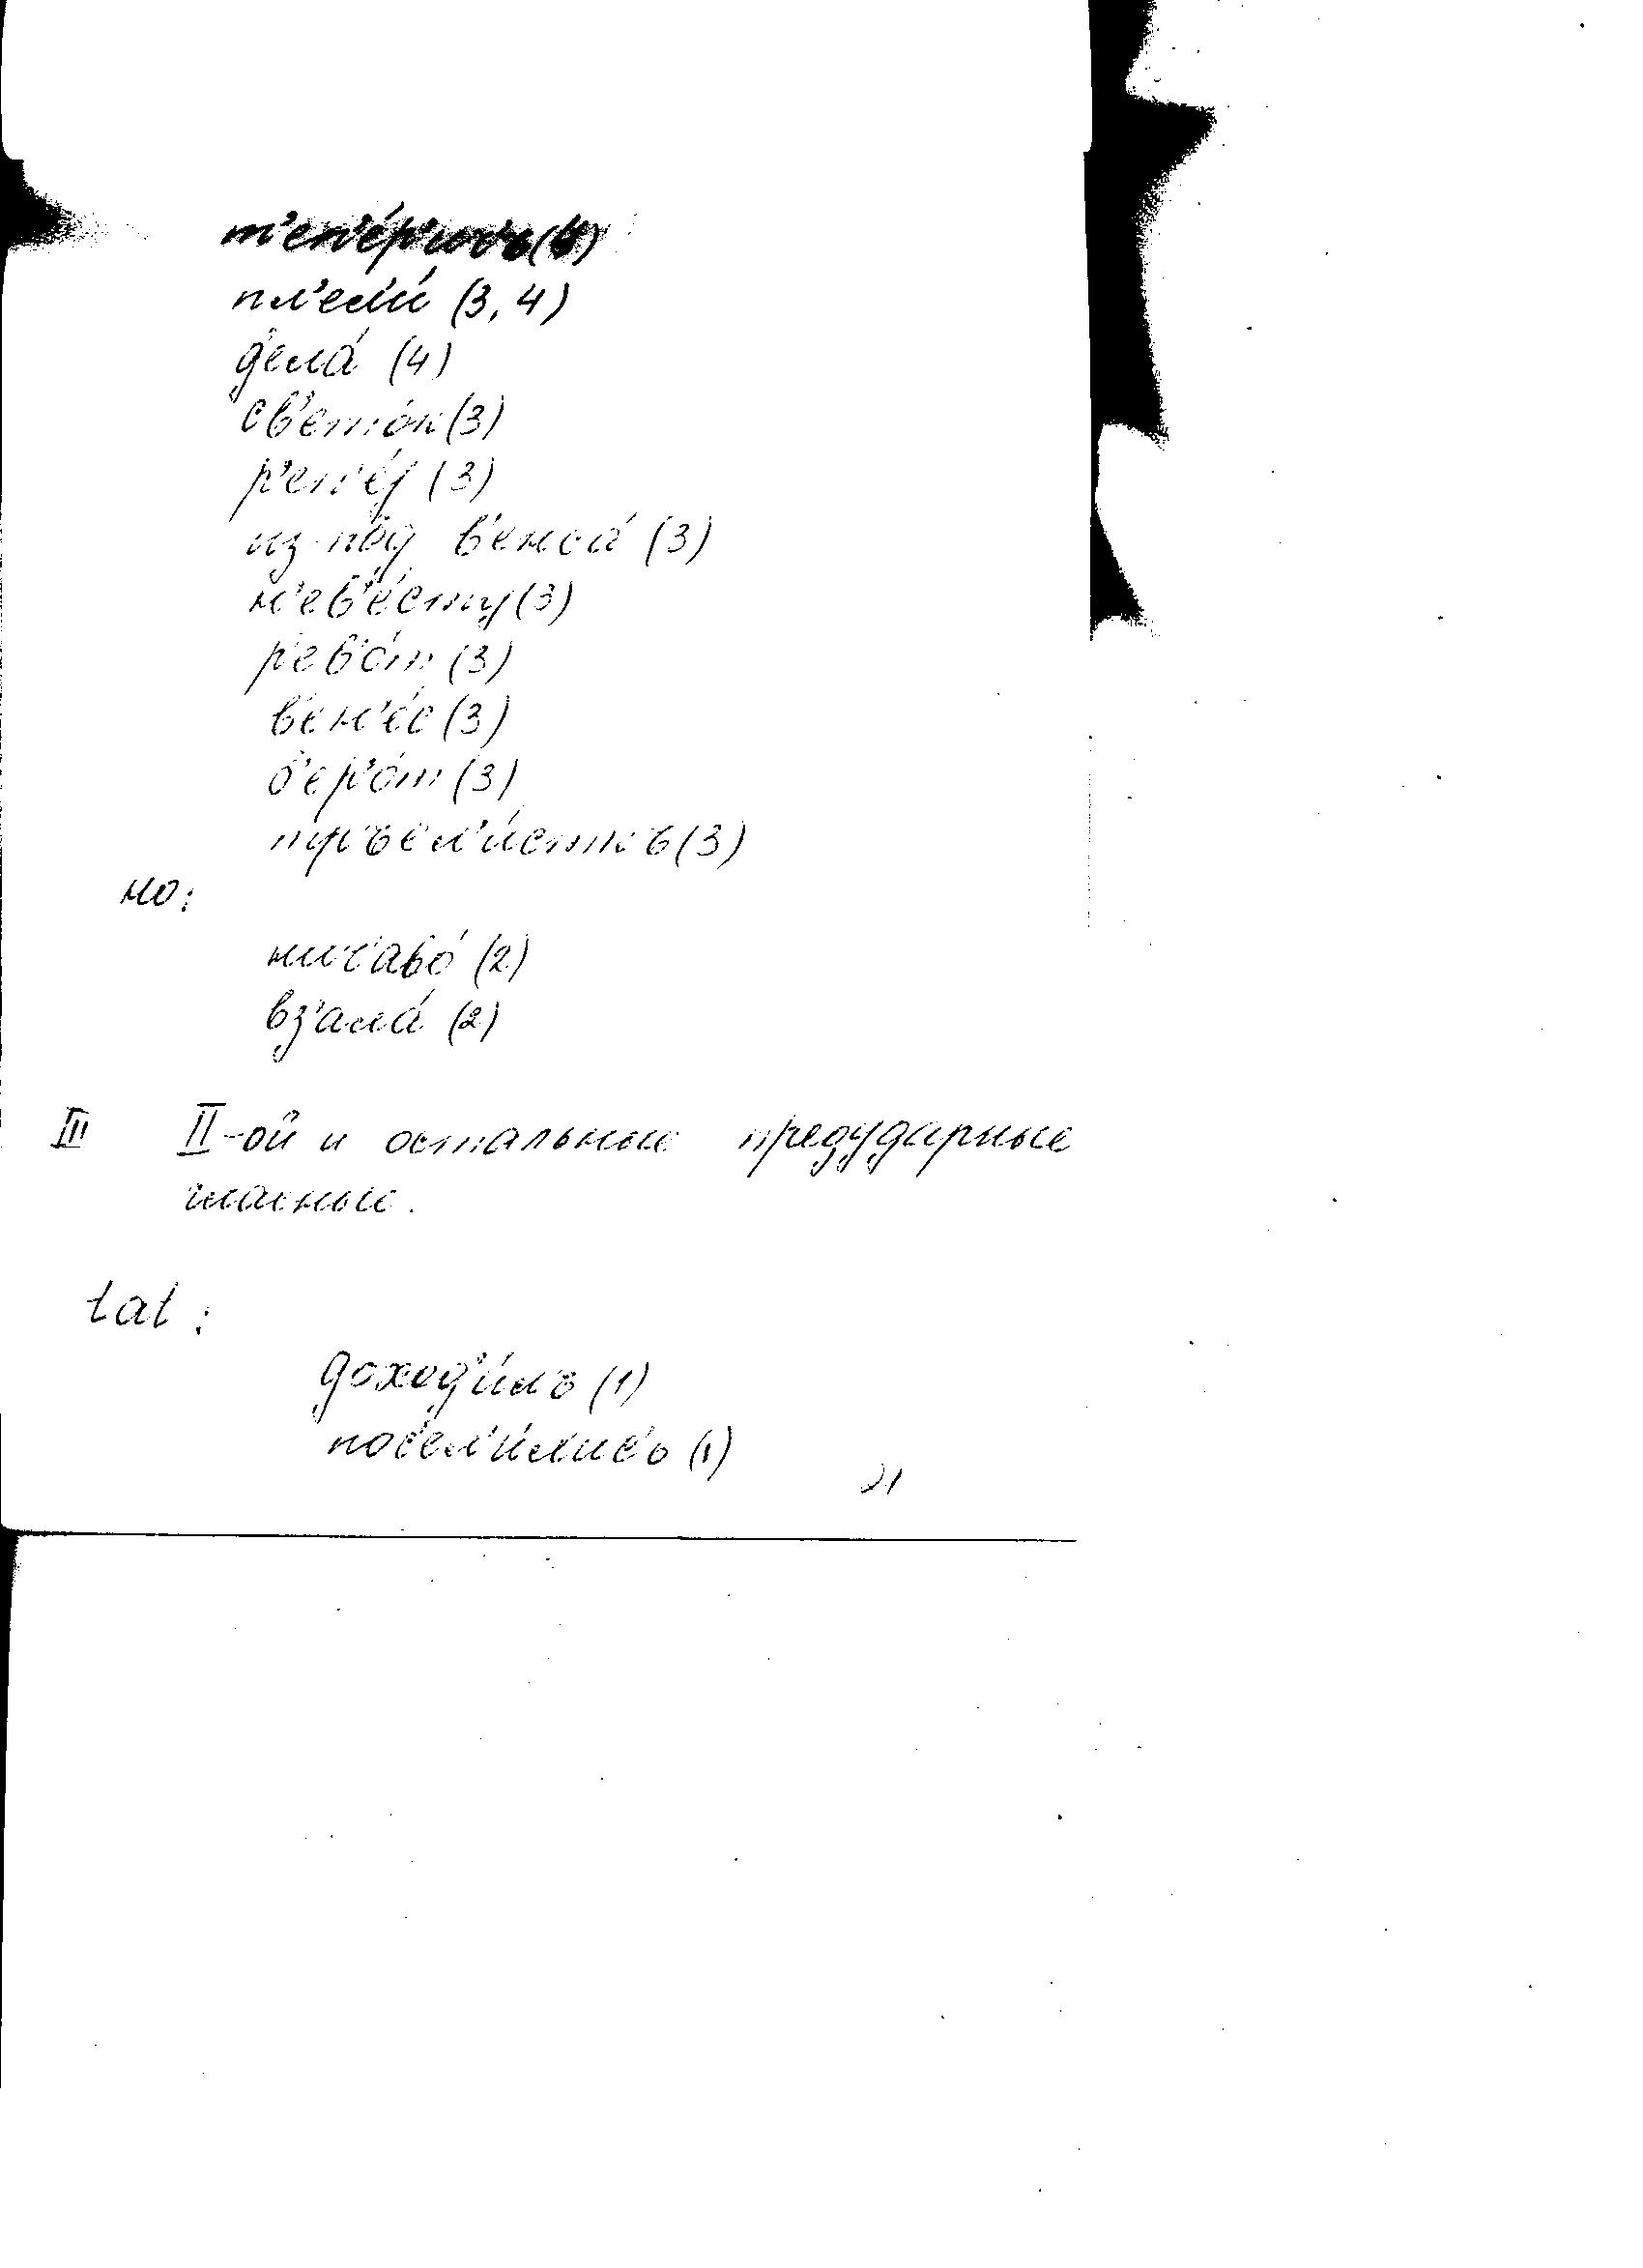 пл'ел'и́ (3, 4)
д'ела́ (4)
св'ето́к (3)
р'еп'е́j (3)
из-под в'енса́ (3)
н'ев'е́сту (3)
р'ев'о́т (3)
в'ен'е́с (3)
б'ер'о́т (3)
(3)
но:
нич'аво́ (2)
вз'ала́ (2)
III II-ой и остальные предударные
гласные.
tat:
доход'и́лъ (1)
пос'ел'и́лис'о (1)
21